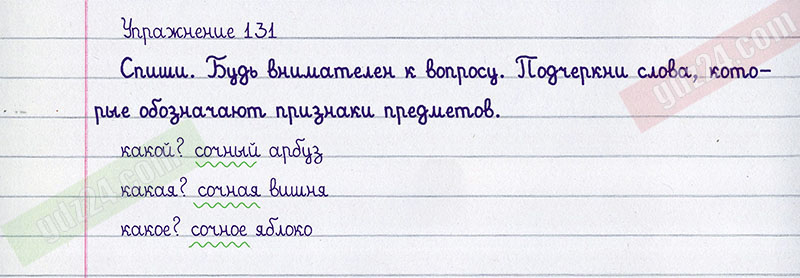 Упражнение 131
Спиши. Будь внимателен к вопросу. Подчеркни слова, кото-
рые обозначают признаки предметов.
какой? сочный арбуз
какая? сочная вишня
какое? сочное яблоко
gdz24.com
gdz24.com